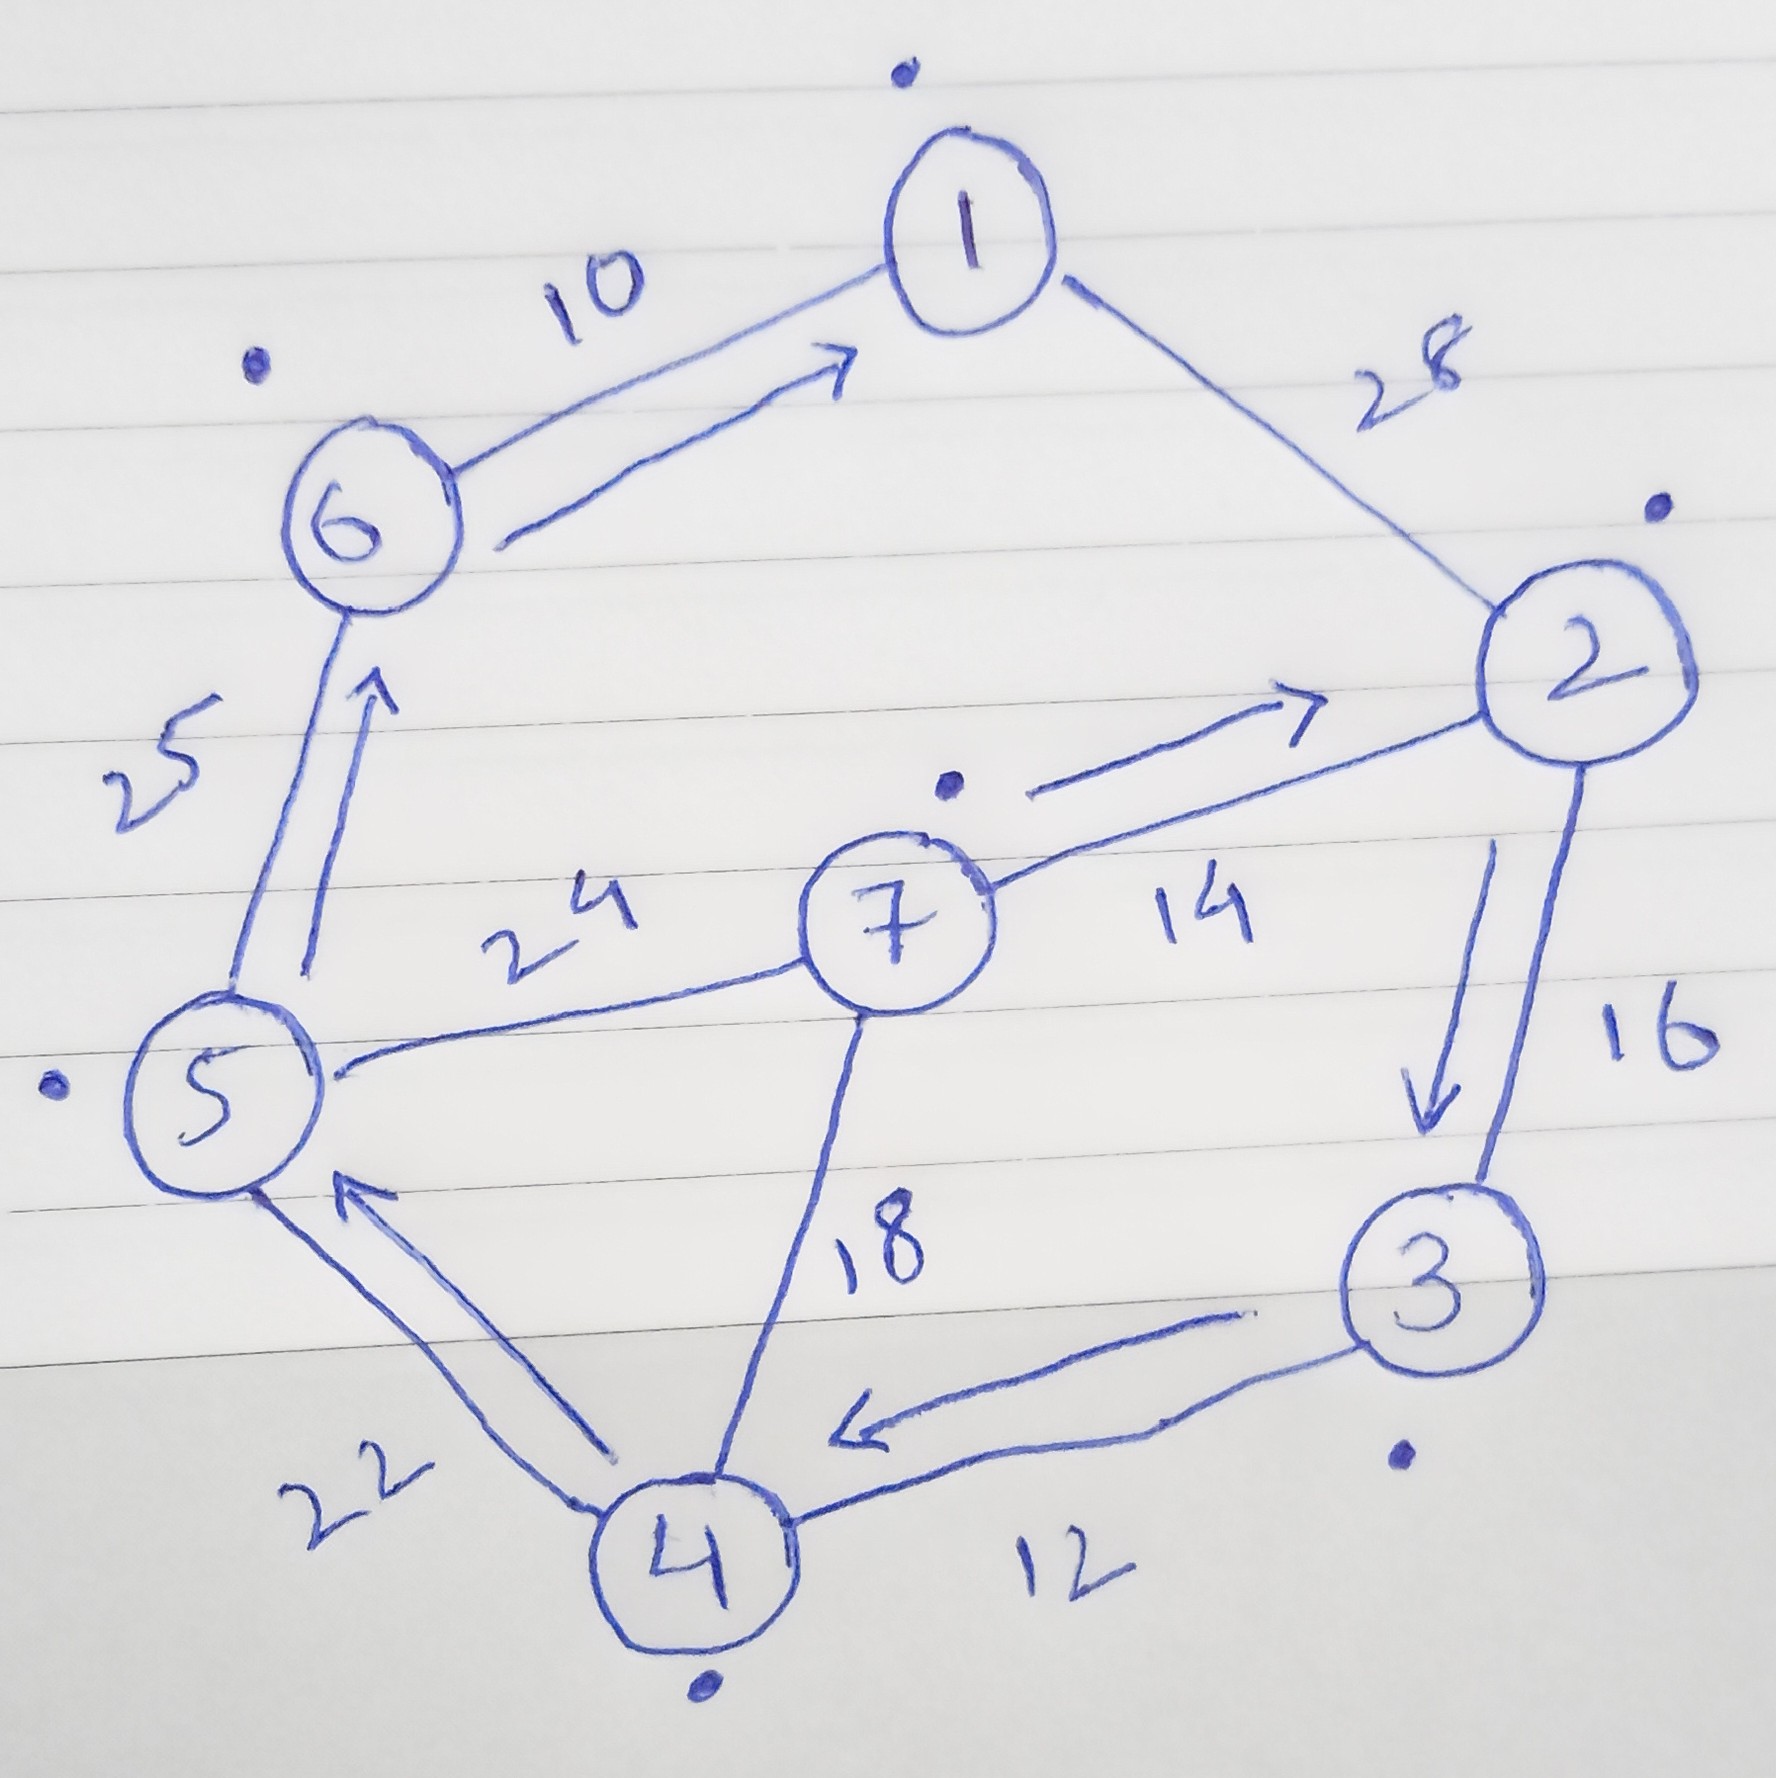 1
10
28
6
2
25
7
24
14
5
16
18
3
22
4
12